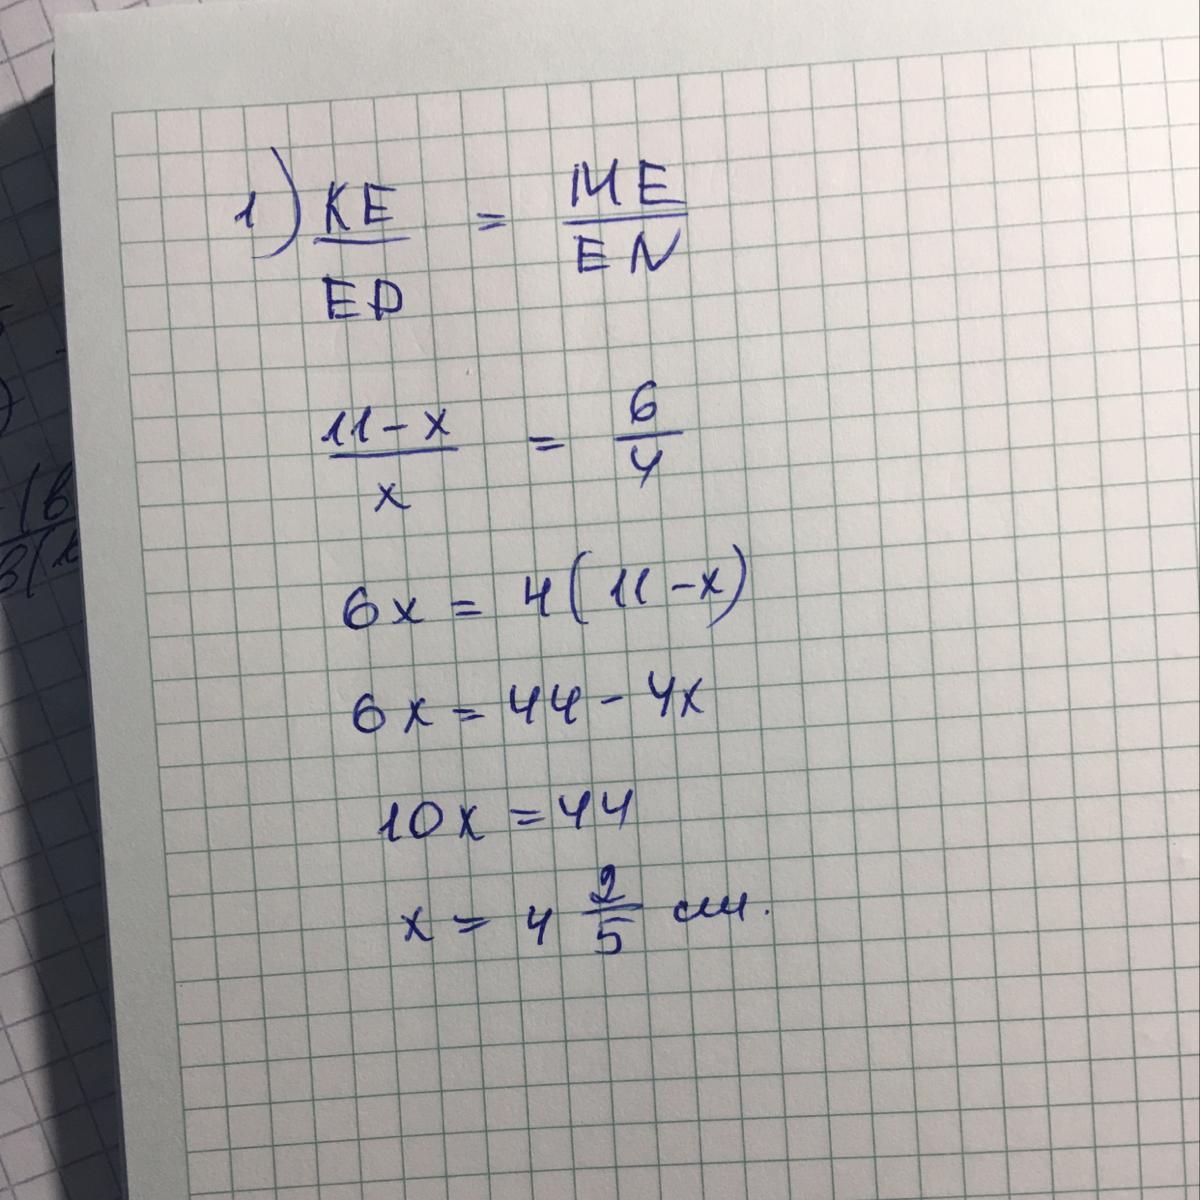 1) KE/ED = ME/EN
11-x/x = 6/4
6x = 4(11-x)
6x = 44 - 4x
10x = 44
x = 4 2/5 см.